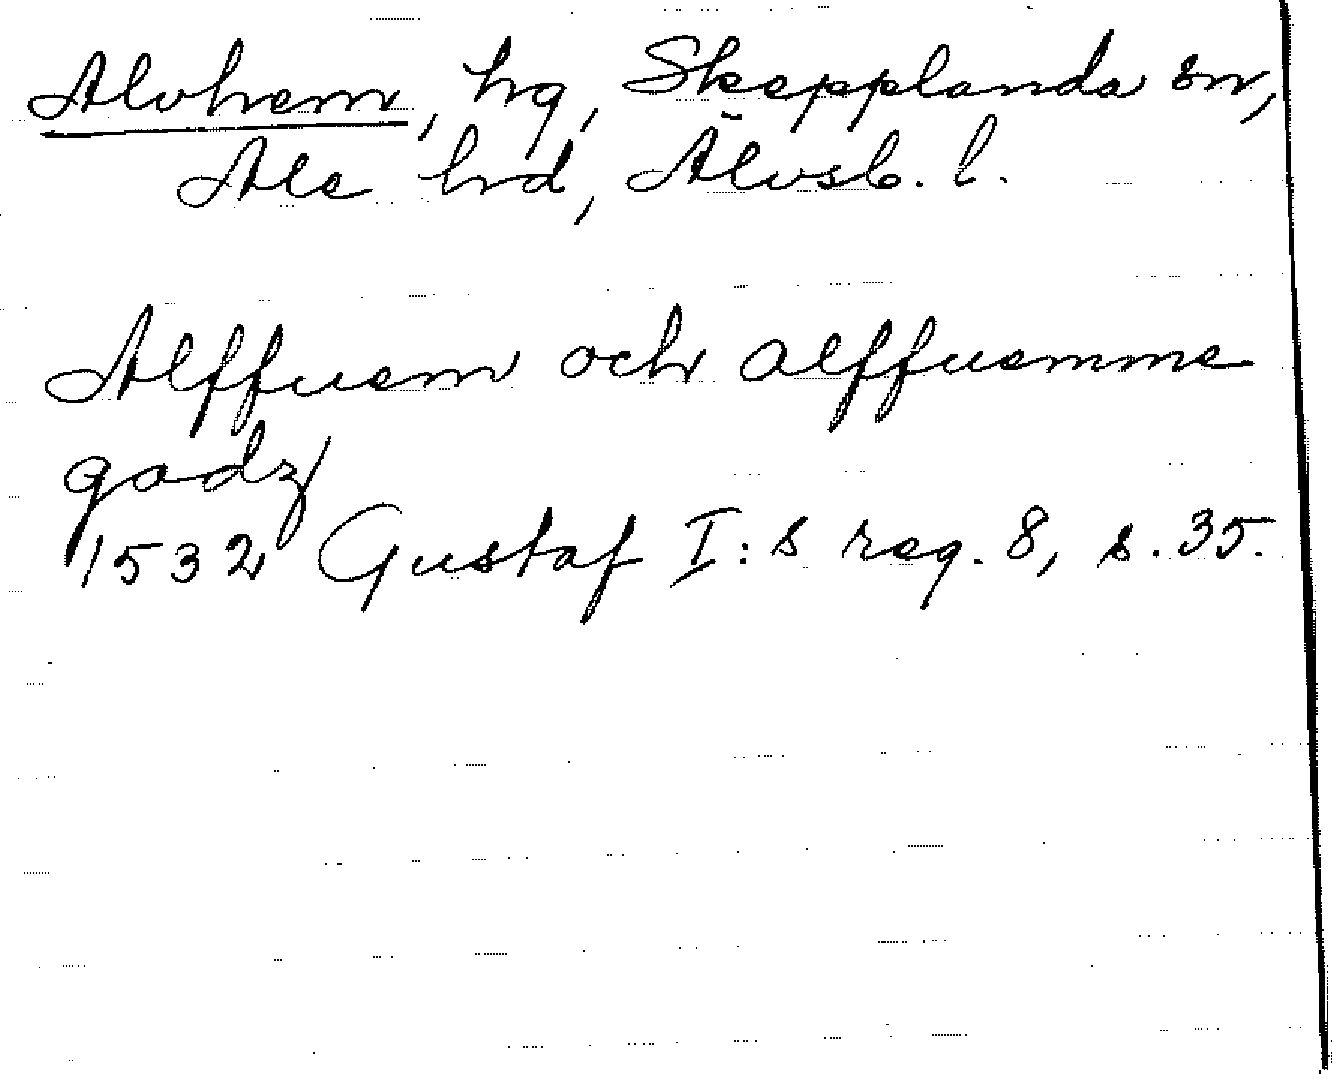 Alvhem, hg, Skepplanda sn,
Ale hrd, Älvsb. l.
Alffuem och alffuemme
godz
1532 Gustaf I:s reg. 8, s. 35.